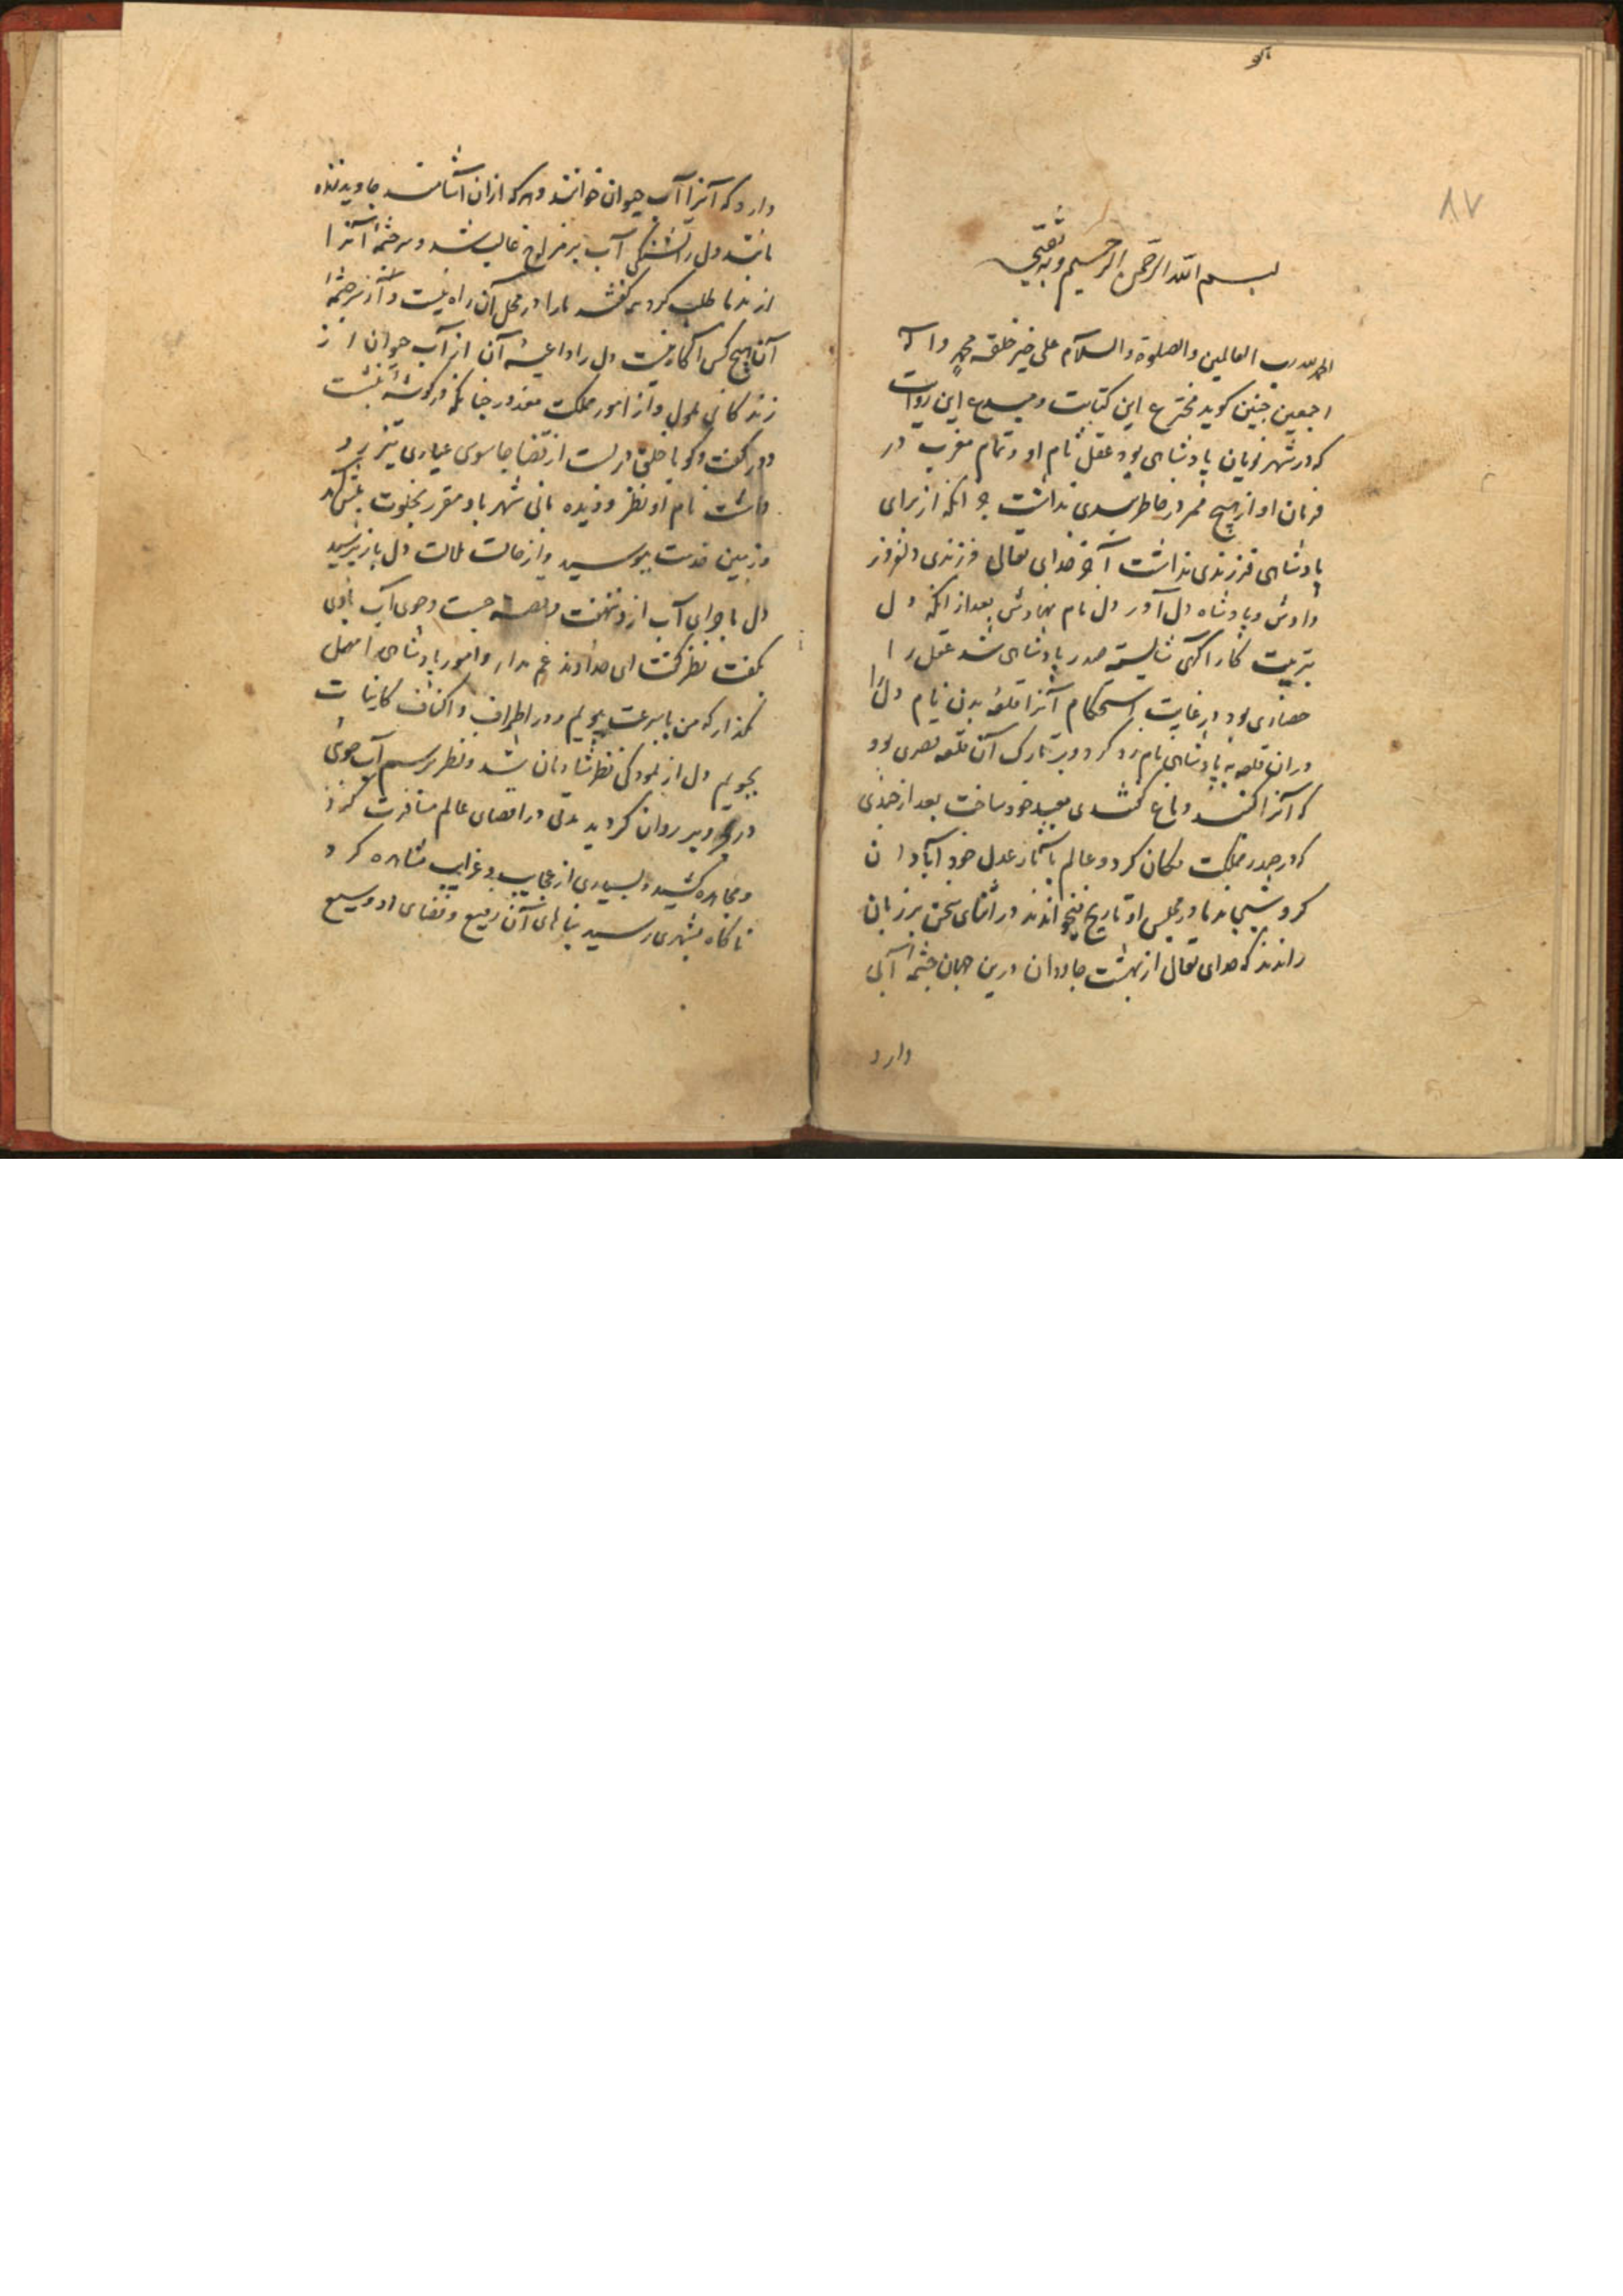 ۸۷
بسم الله الرحمن الرحیم وبه ثقتی
الحمد لله رب العالمین والصلوة والسلام علی خیر خلقه محمد واله
اجمعین چنین کوید مخترع این کتابت ومبدع این روایت
که در شهر یونان پادشاهی بود عقل نام او وتمام مغرب در
فرمان او از هیچ ممر در خاطر بندی نداشت جز انکه از برای
پادشاهی فرزندی نداشت آخر خدای تعالی فرزندی دلفروز
دادش وپادشاه دل آور دل نام نهادش بعد از انکه دل
بتربیت کار اکهی شایسته صدر پادشاهی شد عقل را
حصاری بود در غایت استحکام آنرا قلعه بدن نام دل را
دران قلعه به پادشاهی نام زد کرد وبر تارک آن قلعه قصری بود
که آنرا کنبد دماغ کفتندی معبد خود ساخت بعد از چندی
که در صدر مملکت مکان کرد وعالم بآثار عدل خود آبادان
کرد شبی ندما در مجلس او تاریخ میخواندند در اثنای سخن بر زبان
راندند که خدای تعالی از بهشت جاودان درین جهان چشمه آبی
دارد
دارد که آنرا آب حیوان خوانند وهر که ازان آشامد جاوید زنده
باشد دل را تشنکی آب بر مزاج غالب شد وسرچشمه آنرا
از ندما طلب کرد همه کفتند ما را در محل آن راه نیست واز سرچشمه
آن هیچ کس اکاه نیست دل را داعیه آن از آب حیوان از
زندکانی ملول واز امور مملکت معذور چنانکه در کوشه بنشست
ودر کفت وکو با خلق در بست از قضا جاسوسی عیاری تیزبرد
داشت نام او نظر ودیده بانی شهر باو مقرر بخلوت پیش آمد
وزمین خدمت ببوسید واز حالت ملالت دل باز پرسید
دل ماجرای آب ازو نهفت وقصه جست وجوی آب باوی
بکفت نظر کفت ای خداوند غم مدار وامور پادشاهی را مهمل
مکذار که من بسرعت بپویم ودر اطراف واکناف کاینات
بجویم دل از نمودکی نظر شادمان شد ونظر برسم آب جوی
در بحر وبر روان کردید مدتی در اقصای عالم مسافرت کرد
ومجاهده کشید وبسیاری از عجایب وغرایب مشاهده کرد
ناکاه بشهری رسید بناهای آن رفیع وفضای او وسیع